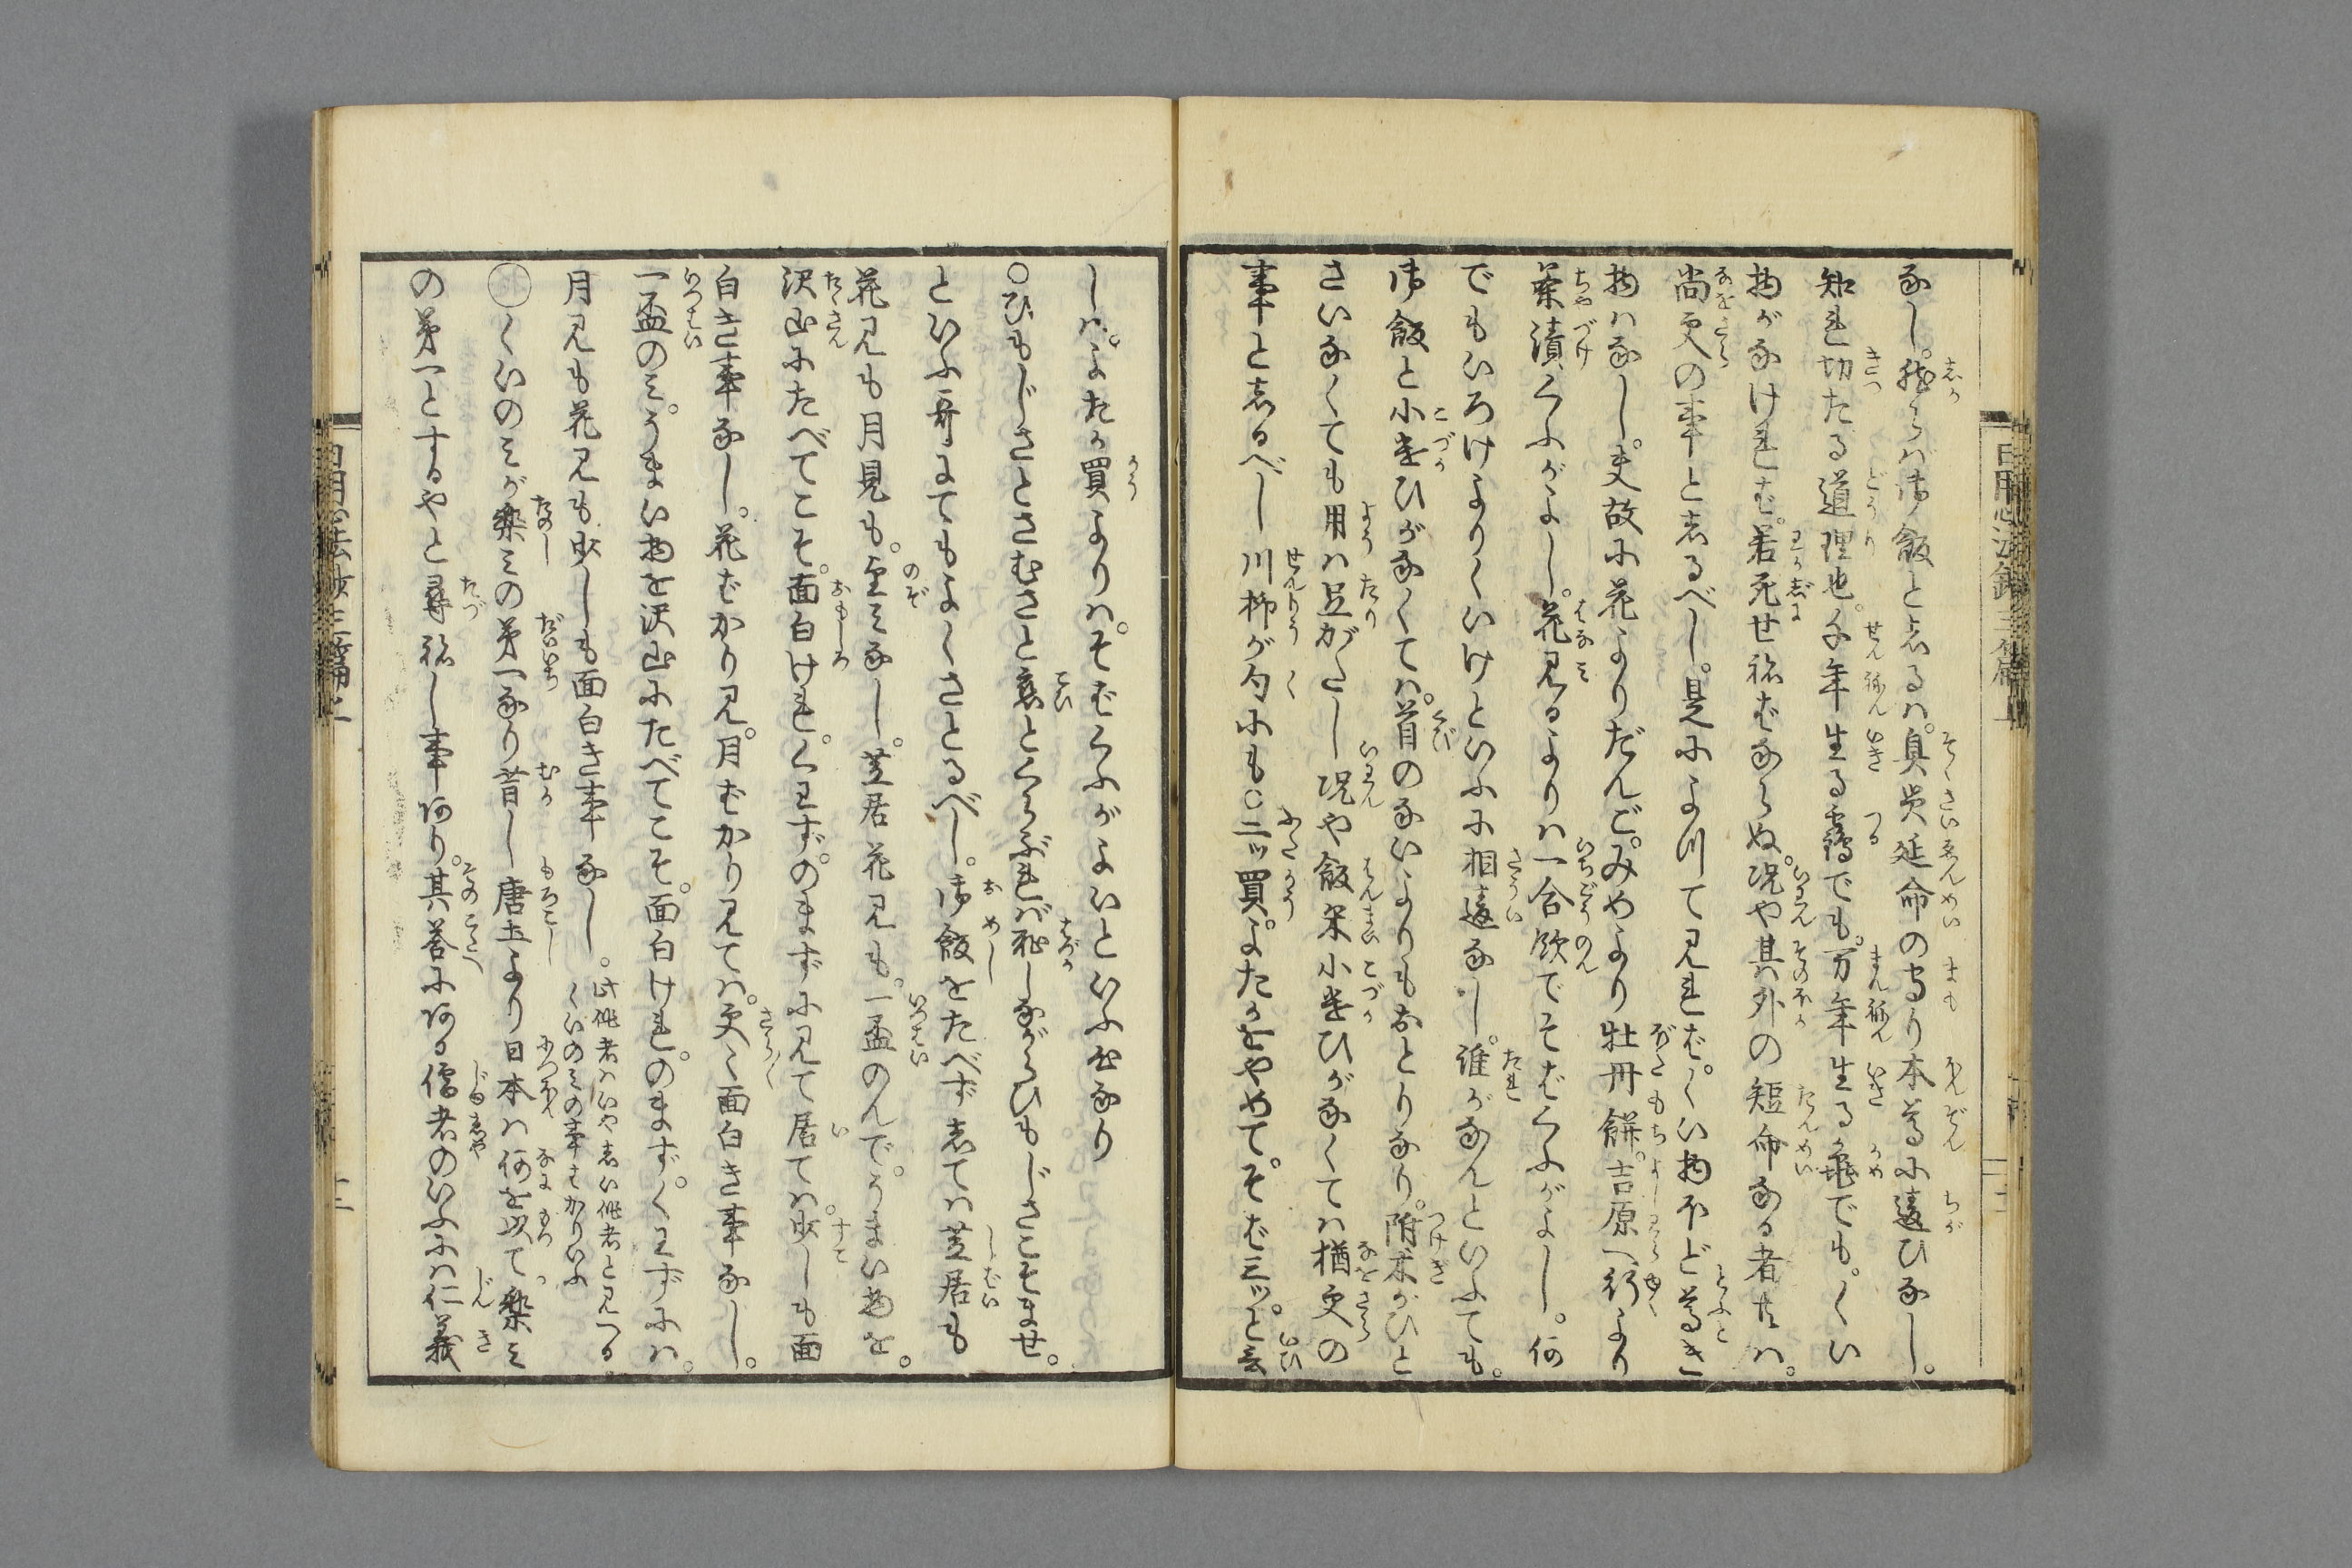 なし。然らバ御飯と志るハ。息災延命の守り本尊に違ひなし。
知れ切たる道理也。千年生る鶴でも。万年生る亀でも。くい
物がなけれむ。若死せねばならぬ。況や其外の短命なる者共ハ。
尚更の事と志るべし。是によつて見れば。くい物ほど尊き
物ハなし。夫故に花よりだんご。みめより牡丹餅。吉原へ行より
茶漬くふがよし。花見るよりハ一合飲でそばくふがよし。何
でもいろけよりくいけといふに相違なし。誰がなんといふても。
御飯と小遣ひがなくてハ。首のないよりもおとりなり。附木がひと
さいなくても用ハ足がたし況や飯米小遣ひがなくてハ猶更の
事と志るべし川柳が句にも○二ッ買。よたかをやめて。そば三ッ。と云
しハ。よたか買よりハ。そばくふがよいといふ心なり
○ひもじさとさむさと恋とくらぶれバ恥しながらひもじさこそませ。
といふ哥にてもよくさとるべし。御飯をたべず志てハ芝居も
花見も月見も。望ミなし。芝居花見も。一盃のんで。うまい物を。
沢山にたべてこそ。面白けれ。くわず。のまずに見て居てハ。少しも面
白き事なし。花ばかり見。月ばかり見てハ。更〻面白き事なし。
一盃のミ。うまい物を沢山にたべてこそ。面白けれ。のまず。くわずにハ。
月見も花見も少しも面白き事なし。此作者ハいや志い作者と見へる
くいのミの事はかりいふ
○くいのミが楽ミの第一なり昔し唐土より日本ハ何を以て楽ミ
の第一とするやと尋ねし事あり。其答にある儒者のいふにハ仁義